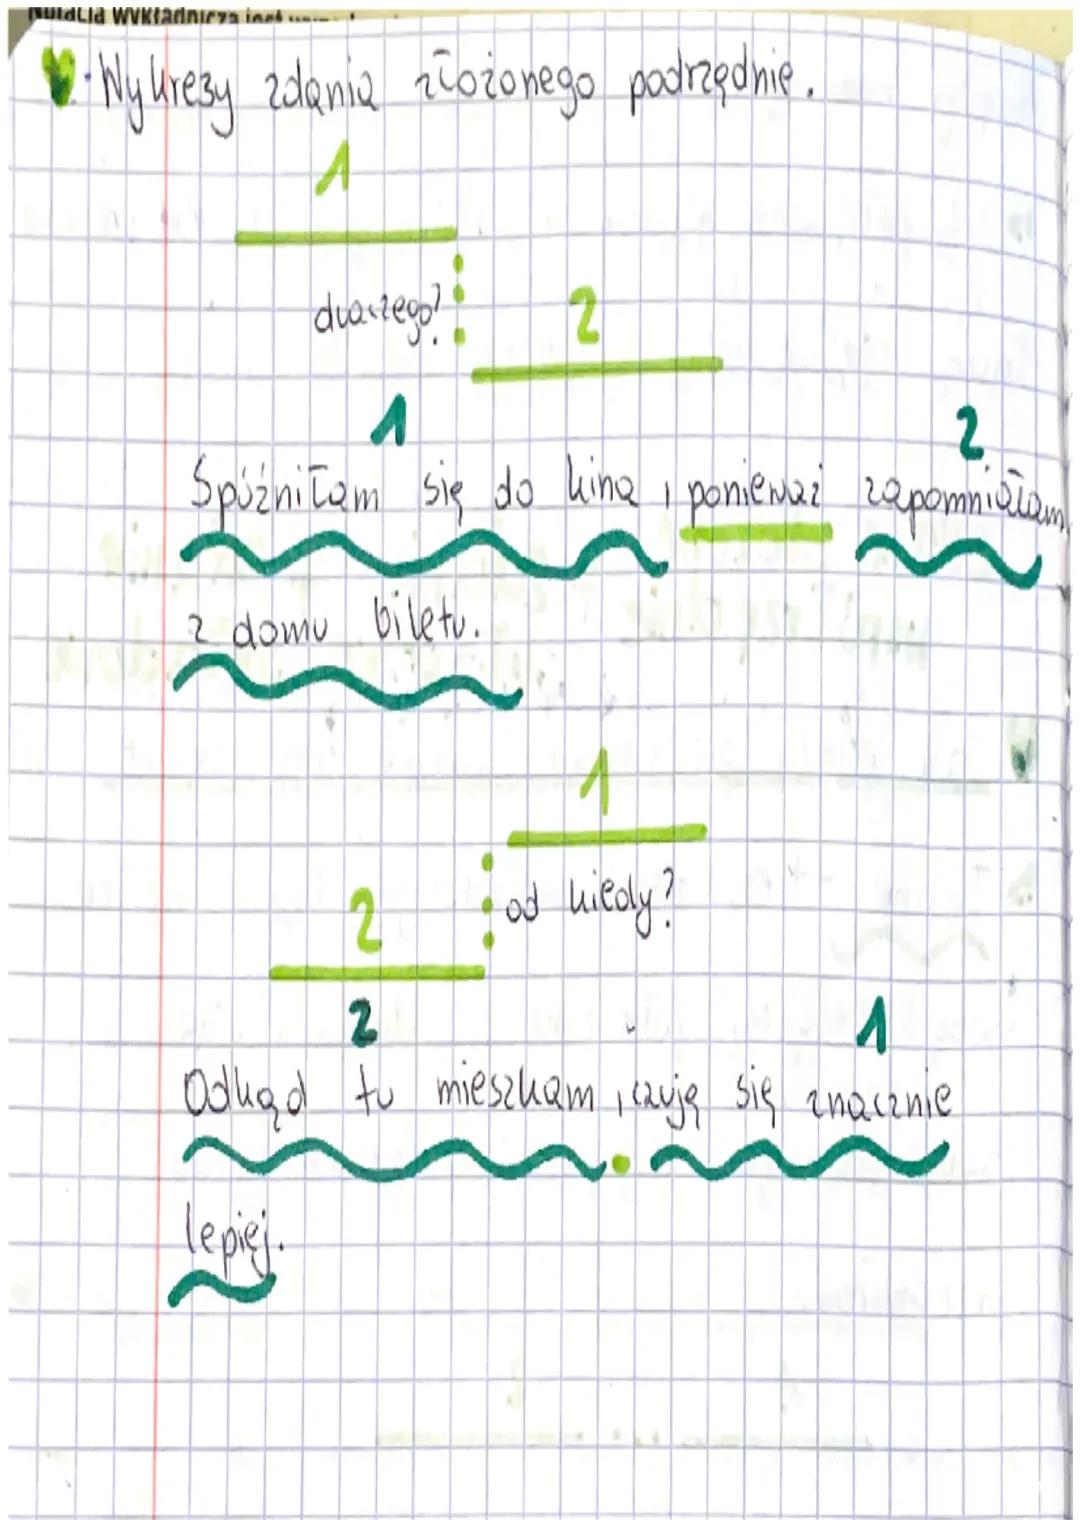 wykładnicza jest
Wykresy zdania złożonego podrzędnie.
1
dlaczego?
2
1 2
Spóźniłam się do kina, ponieważ zapomniałam
z domu biletu.
1
2 od kiedy?
2 1
Odkąd tu mieszkam, czuję się znacznie
lepiej.